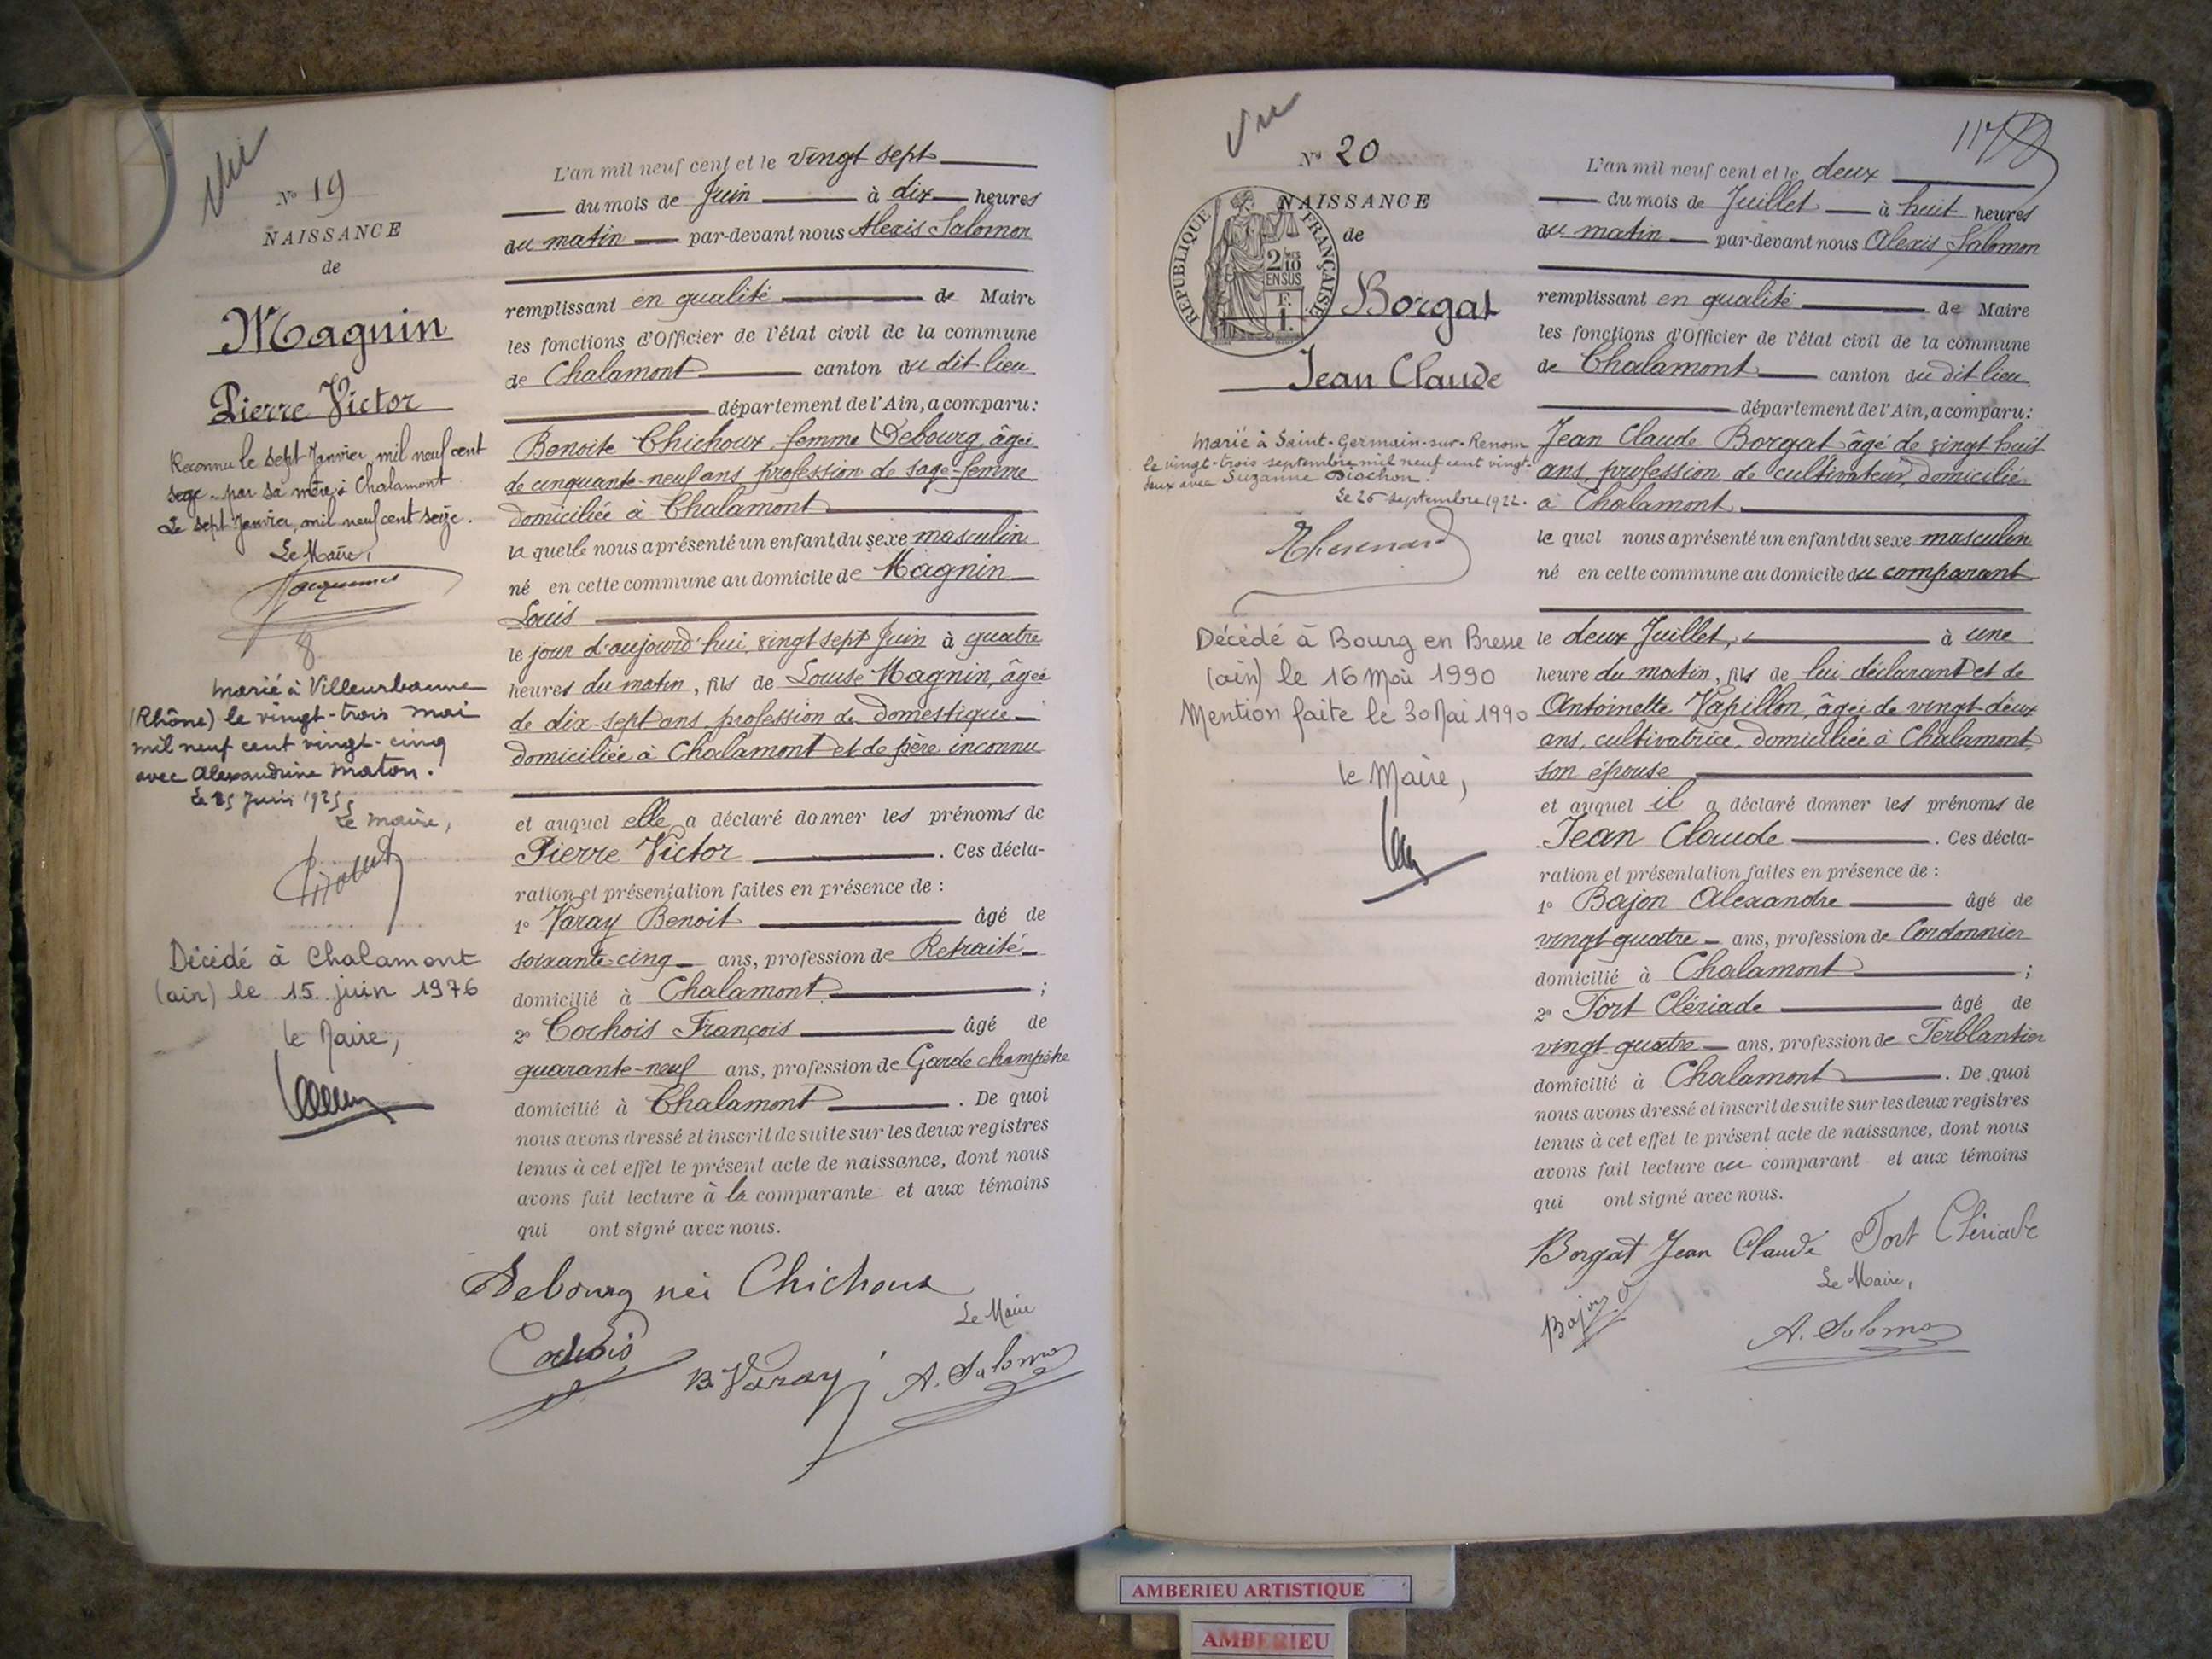 Vu
N° 19
NAISSANCE
de
Magnin
Pierre Victor
Reconnu le sept Janvier mil neuf cent
seize par sa mère à Chalamont
Le sept Janvier mil neuf cent seize.
Le Maire,
marié à Villeurbanne
(Rhône) le vingt-trois mai
mil neuf cent vingt-cinq
avec Alexandrine Maton.
Le 25 Juin 1925
Le Maire,
Décédé à Chalamont
(ain) le 15 juin 1976
le Maire,
L'an mil neuf cent et le vingt sept
du mois de Juin à dix heures
du matin par-devant nous Alexis Salomon
remplissant en qualité de Maire
les fonctions d'Officier de l'état civil de la commune
de Chalamont canton du dit lieu
département de l'Ain, a comparu:
Benoite Chichoux femme Debourg, âgée
de cinquante-neuf ans, profession de sage-femme
domiciliée à Chalamont
la quelle nous a présenté un enfant du sexe masculin
né en cette commune au domicile de Magnin
Louis
le jour d'aujourd'hui vingt sept Juin à quatre
heures du matin, fils de Louise Magnin, âgée
de dix-sept ans, profession de domestique
domiciliée à Chalamont et de père inconnu
et auquel elle a déclaré donner les prénoms de
Pierre Victor . Ces décla-
ration et présentation faites en présence de :
1° Varay Benoit âgé de
soixante-cinq ans, profession de Retraité
domicilié à Chalamont ;
2° Cochois François âgé de
quarante-neuf ans, profession de Garde champêtre
domicilié à Chalamont . De quoi
nous avons dressé et inscrit de suite sur les deux registres
tenus à cet effet le présent acte de naissance, dont nous
avons fait lecture à la comparante et aux témoins
qui ont signé avec nous.
Debourg née Chichoux
Le Maire
Cochois
B. Varay
A. Salomon
Vu
N° 20
117
NAISSANCE
de
REPUBLIQUE FRANÇAISE
2 MES
10
EN SUS
F.
1.
Borgat
Jean Claude
Marié à Saint-Germain-sur-Renom
le vingt-trois septembre mil neuf cent vingt-
deux avec Suzanne Diochon.
Le 26 septembre 1922.
Décédé à Bourg en Bresse
(ain) le 16 Mai 1990
Mention faite le 30 Mai 1990
le Maire,
L'an mil neuf cent et le deux
du mois de Juillet à huit heures
du matin par-devant nous Alexis Salomon
remplissant en qualité de Maire
les fonctions d'Officier de l'état civil de la commune
de Chalamont canton du dit lieu
département de l'Ain, a comparu:
Jean Claude Borgat âgé de vingt huit
ans, profession de cultivateur, domicilié
à Chalamont
le quel nous a présenté un enfant du sexe masculin
né en cette commune au domicile du comparant
le deux Juillet, à une
heure du matin, fils de lui déclarant et de
Antoinette Vapillon, âgée de vingt-deux
ans, cultivatrice, domiciliée à Chalamont,
son épouse
et auquel il a déclaré donner les prénoms de
Jean Claude . Ces décla-
ration et présentation faites en présence de :
1° Bajon Alexandre âgé de
vingt quatre ans, profession de Cordonnier
domicilié à Chalamont ;
2° Fort Clériade âgé de
vingt quatre ans, profession de Ferblantier
domicilié à Chalamont . De quoi
nous avons dressé et inscrit de suite sur les deux registres
tenus à cet effet le présent acte de naissance, dont nous
avons fait lecture au comparant et aux témoins
qui ont signé avec nous.
Borgat Jean Claude Fort Clériade
Le Maire,
Bajon
A. Salomon
AMBERIEU ARTISTIQUE
AMBERIEU